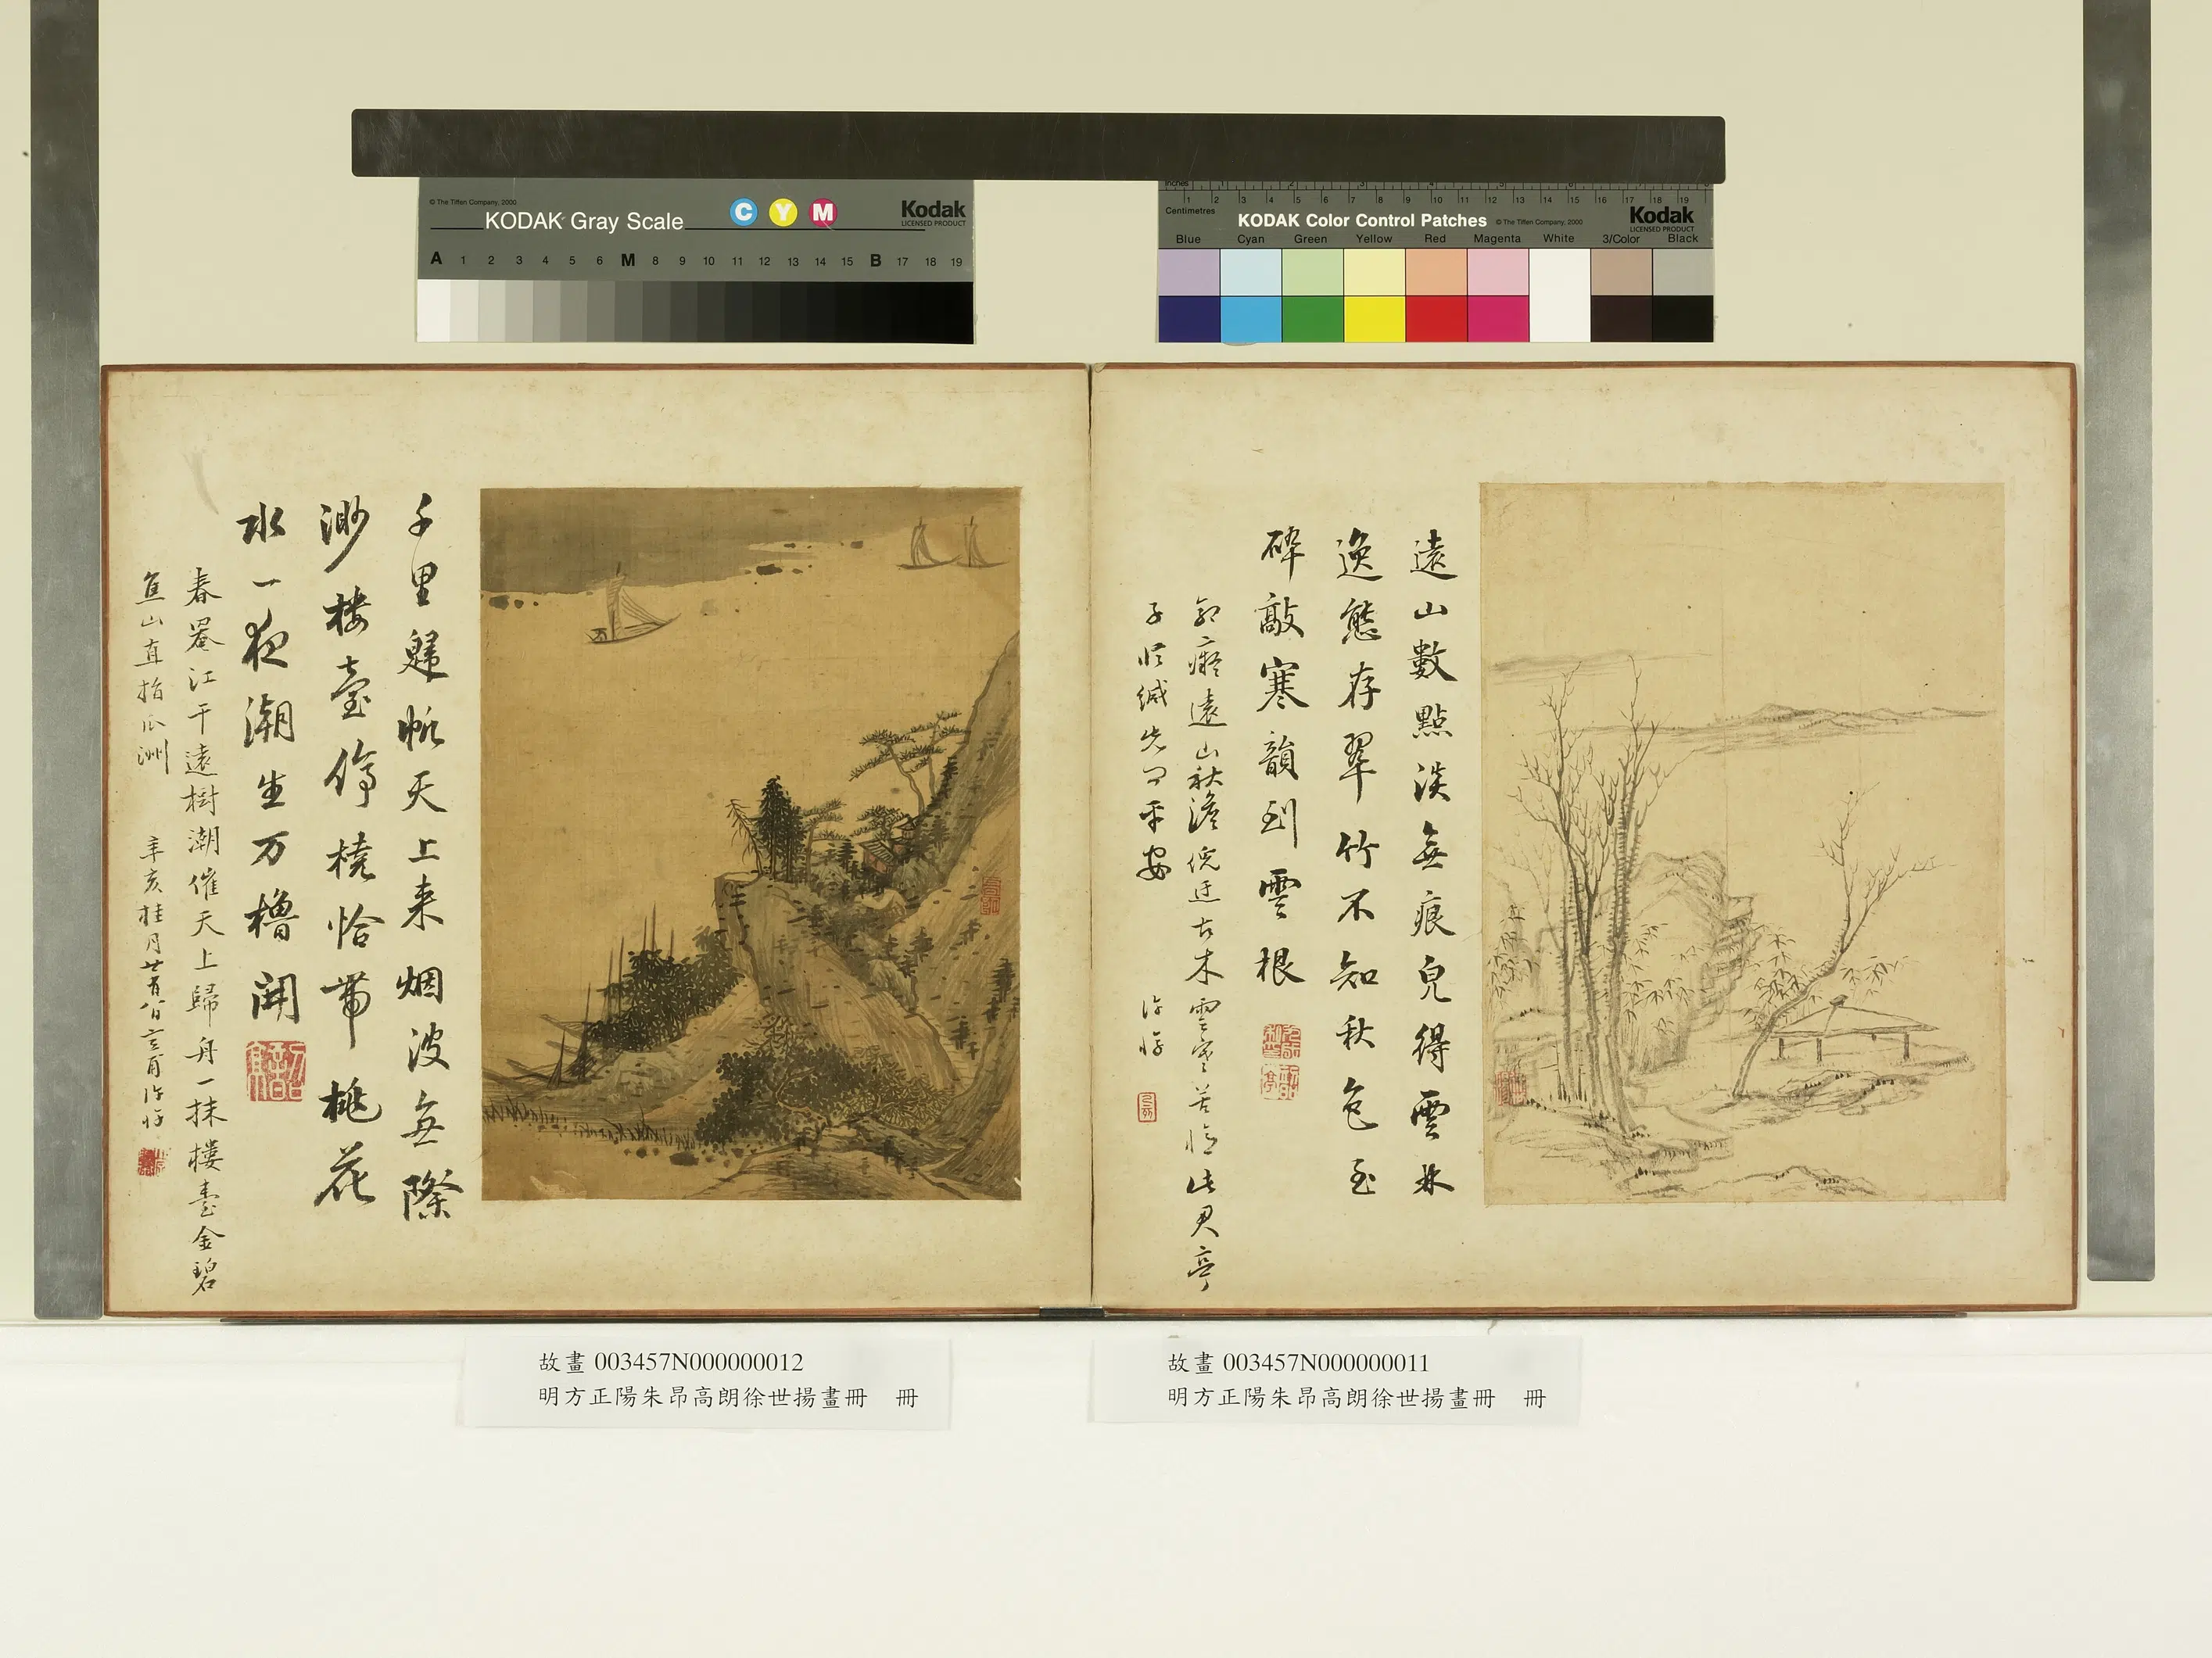 © The Tiffen Company, 2000
KODAK Gray Scale
C Y M
Kodak
LICENSED PRODUCT
A 1 2 3 4 5 6 M 8 9 10 11 12 13 14 15 B 17 18 19
Inches 1 2 3 4 5 6 7 8
Centimetres 1 2 3 4 5 6 7 8 9 10 11 12 13 14 15 16 17 18 19
KODAK Color Control Patches © The Tiffen Company, 2000
Kodak
LICENSED PRODUCT
Blue Cyan Green Yellow Red Magenta White 3/Color Black
遠山數點淡無痕皃得雲林
逸態存翠竹不知秋色至
碎敲寒韻到雲根
遠山秋澹倪迂古木雲寒苦憶此君亭
子 緘 平安
千里歸帆天上来烟波無際
渺楼臺停橈恰帶桃花
水一夜潮生万櫓開
春江干遠樹潮催天上歸舟一抹樓臺金碧
焦山直指瓜洲
辛亥桂月
故畫 003457N000000012
明方正陽朱昂高朗徐世揚畫冊 冊
故畫 003457N000000011
明方正陽朱昂高朗徐世揚畫冊 冊